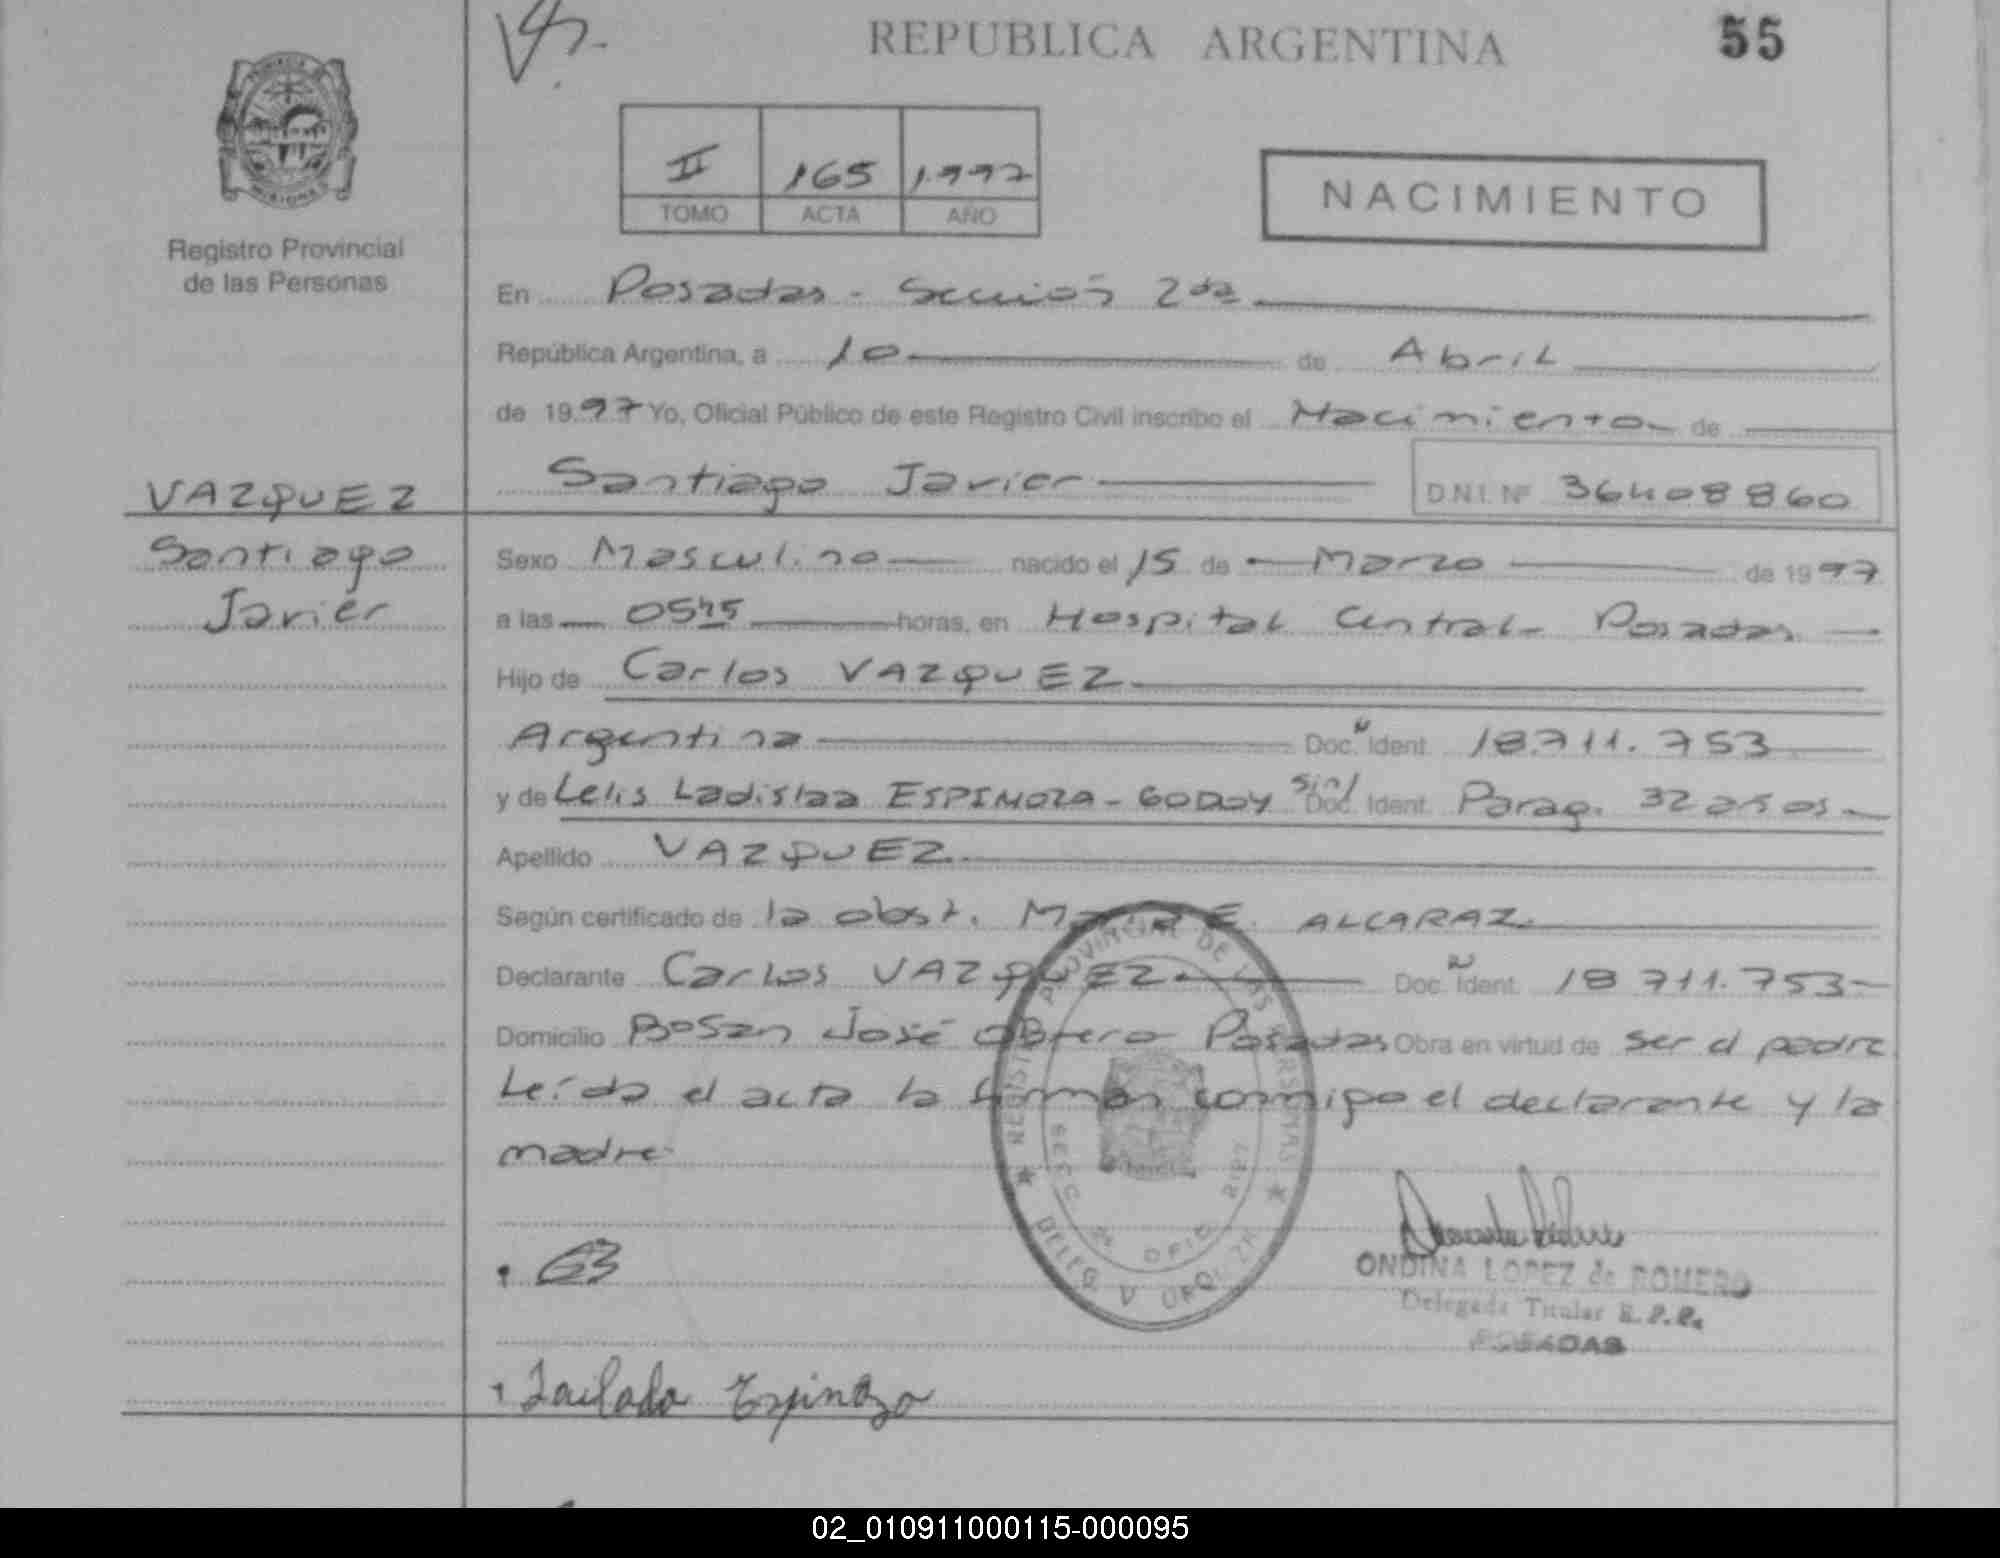 REPUBLICA ARGENTINA
55
II 165 1.997
TOMO ACTA AÑO
NACIMIENTO
Registro Provincial
de las Personas
En Posadas - Sección 2da
República Argentina, a 10 de Abril
de 1997 Yo, Oficial Público de este Registro Civil inscribo el Nacimiento de
VAZQUEZ
Santiago Javier D.N.I. Nº 36408860
Santiago
Javier
Sexo Masculino nacido el 15 de Marzo de 1997
a las 0545 horas, en Hospital Central - Posadas
Hijo de Carlos VAZQUEZ
Argentina Doc. Ident. 18.711.753
y de Lelis Ladislaa ESPINOZA - GODOY sin/ Doc. Ident. Parag. 32 años
Apellido VAZQUEZ
Según certificado de la obst. María E. ALCARAZ
Declarante Carlos VAZQUEZ Doc. Ident. 18 711.753
Domicilio Bº San José Obrero Posadas Obra en virtud de ser el padre
Leída el acta la firman conmigo el declarante y la
madre
REGISTRO PROVINCIAL DE LAS PERSONAS
SECC 2a OFIC
ONDINA LOPEZ de ROMERO
Delegada Titular R.P.P.
POSADAS
Espinoza
02_010911000115-000095